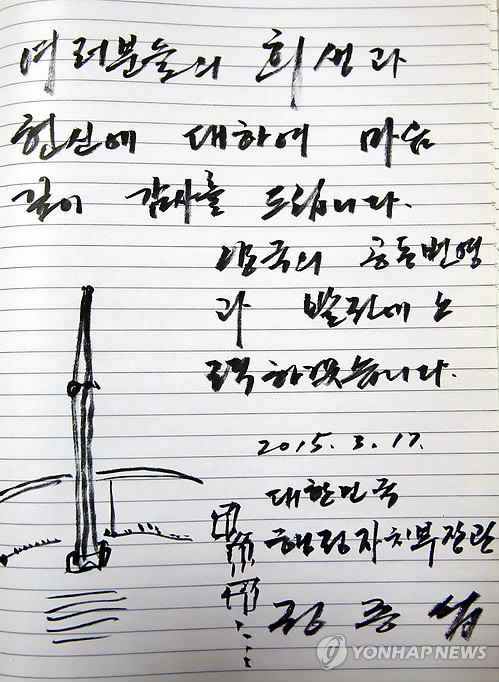 여러분들의 희생과
헌신에 대하여 마음
깊이 감사를 드립니다.
양국의 공동번영
과 발전에 노
력하겠습니다.
2015. 3. 17.
대한민국
행정자치부장관
정종섭
YONHAP NEWS